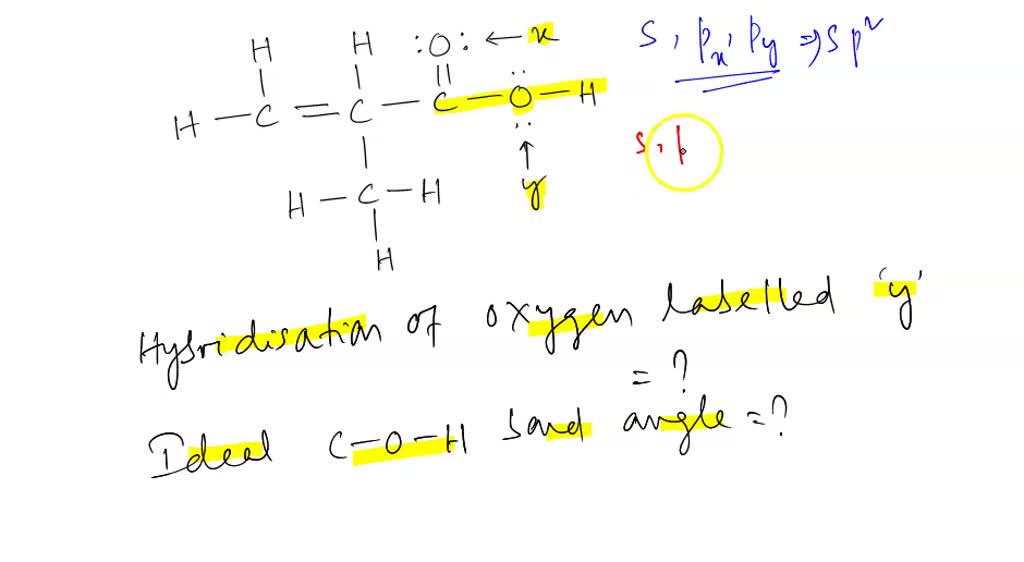 H H :O: ← x
H — C = C — C — O — H
y
H — C — H
H
s, px, py ⇒ sp²
s, p
Hybridisation of oxygen labelled 'y'
= ?
Ideal C-O-H bond angle = ?